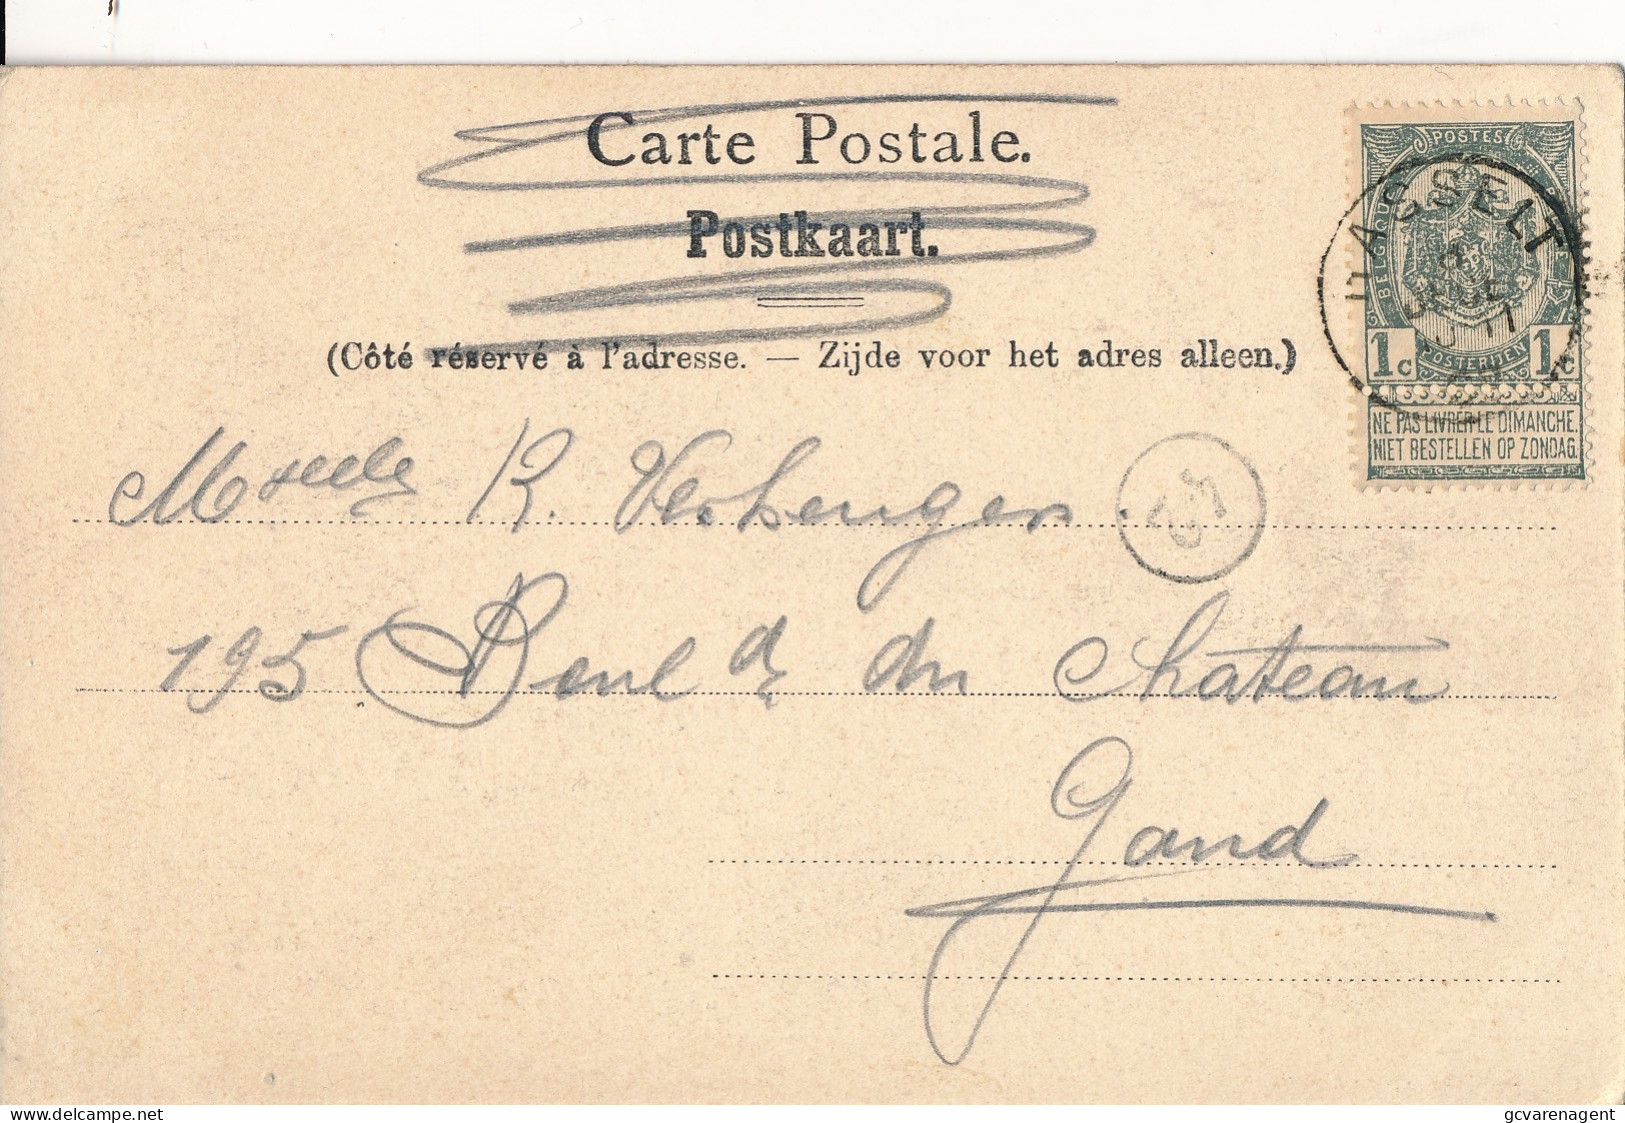 Carte Postale.
Postkaart.
(Côté réservé à l'adresse. — Zijde voor het adres alleen.)
POSTES
BELGIQUE
HASSELT
1c POSTERIJEN 1c
NE PAS LIVRER LE DIMANCHE.
NIET BESTELLEN OP ZONDAG.
R.
195 Boul d du Château
Gand
delcampe.net
gcvarenagent